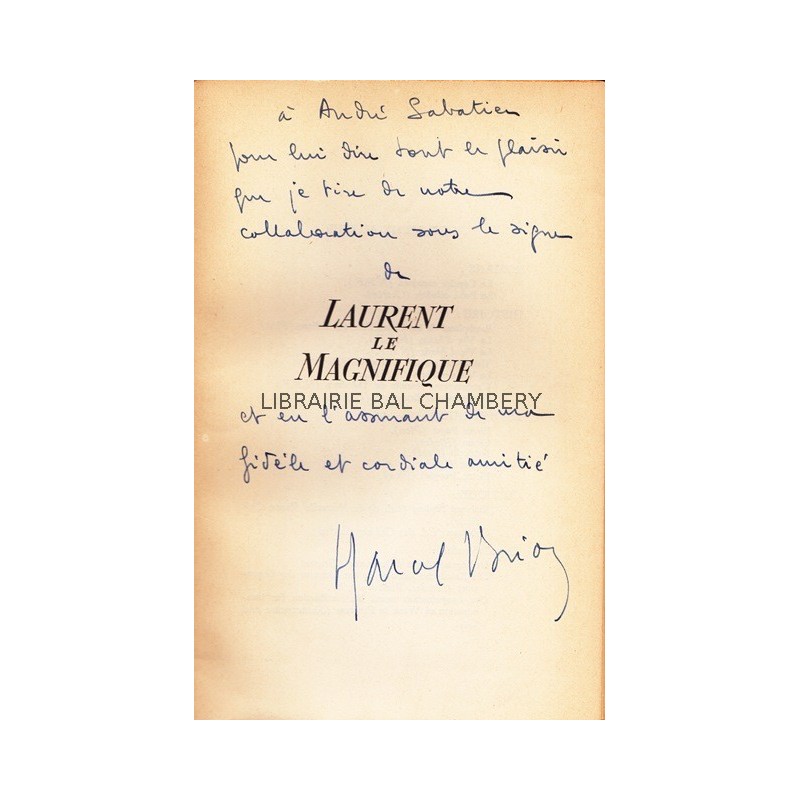 à André Sabatier
pour lui dire tout le plaisir
que je tire de notre
collaboration sous le signe
de
LAURENT
LE
MAGNIFIQUE
LIBRAIRIE BAL CHAMBERY
et en l'assurant de ma
fidèle et cordiale amitié
Marcel Brion